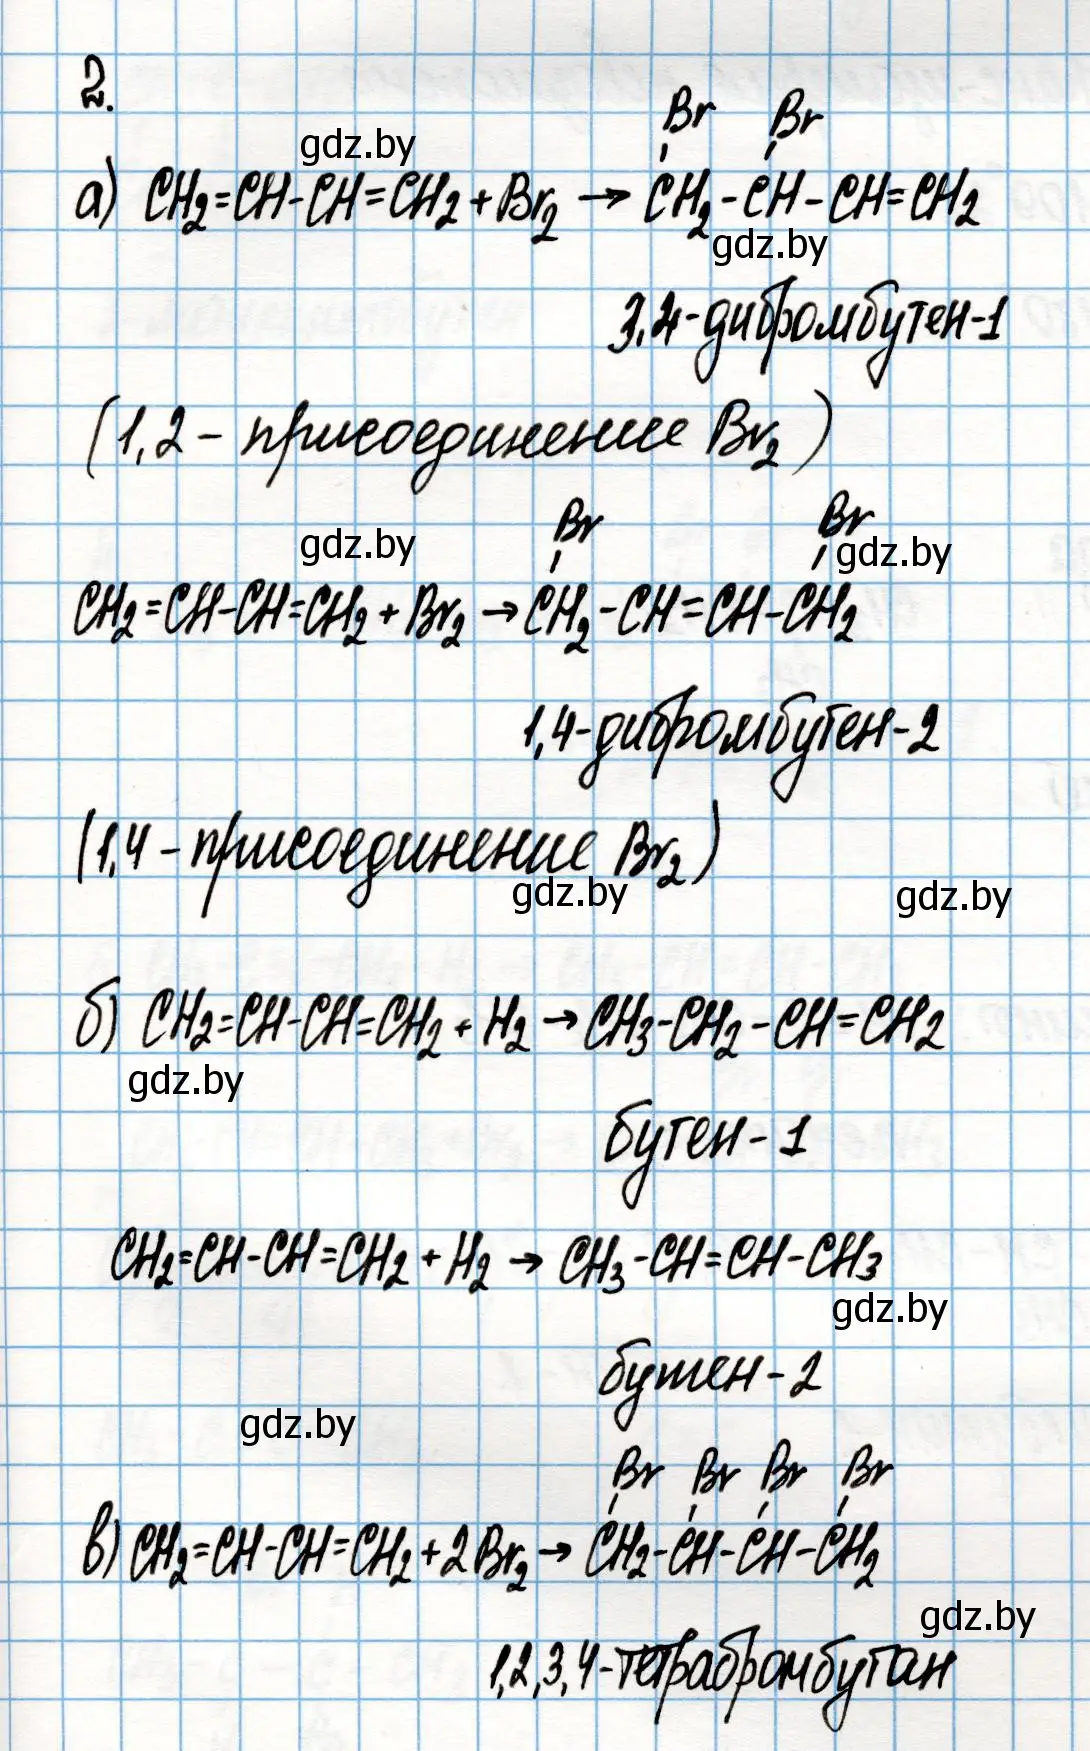 2.
gdz.by
Br Br
а) CH2=CH-CH=CH2+Br2 → CH2-CH-CH=CH2
gdz.by
3,4-дибромбутен-1
(1,2-присоединение Br2)
gdz.by
Br Br
gdz.by
CH2=CH-CH=CH2+Br2 → CH2-CH=CH-CH2
1,4-дибромбутен-2
(1,4-присоединение Br2)
gdz.by gdz.by
б) CH2=CH-CH=CH2+H2 → CH3-CH2-CH=CH2
gdz.by
бутен-1
CH2=CH-CH=CH2+H2 → CH3-CH=CH-CH3
gdz.by
бутен-2
gdz.by
Br Br Br Br
в) CH2=CH-CH=CH2+2Br2 → CH2-CH-CH-CH2
gdz.by
1,2,3,4-тетрабромбутан